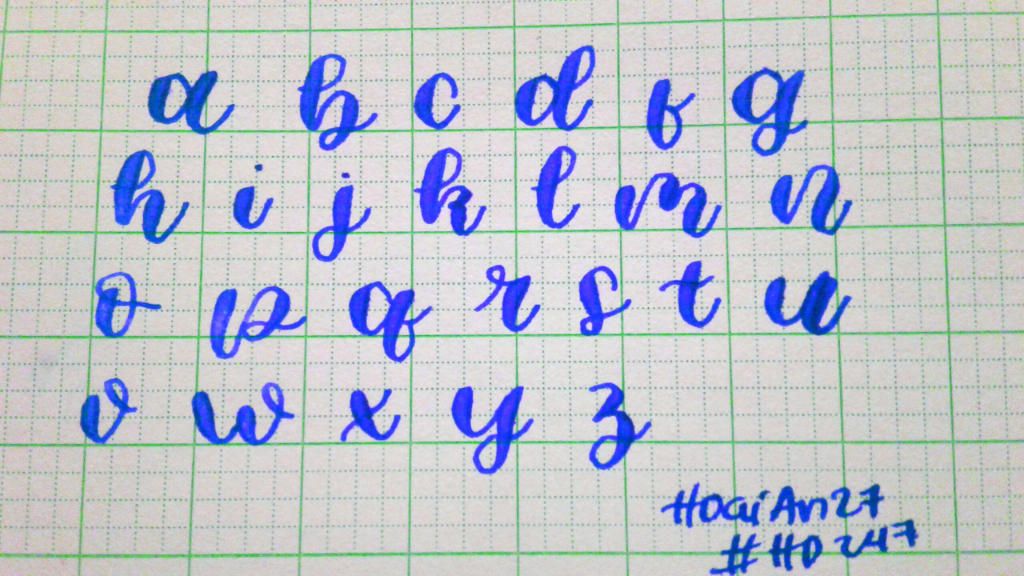 a b c d f g
h i j k l m n
o p q r s t u
v w x y z
HoaiAn27
#HD247